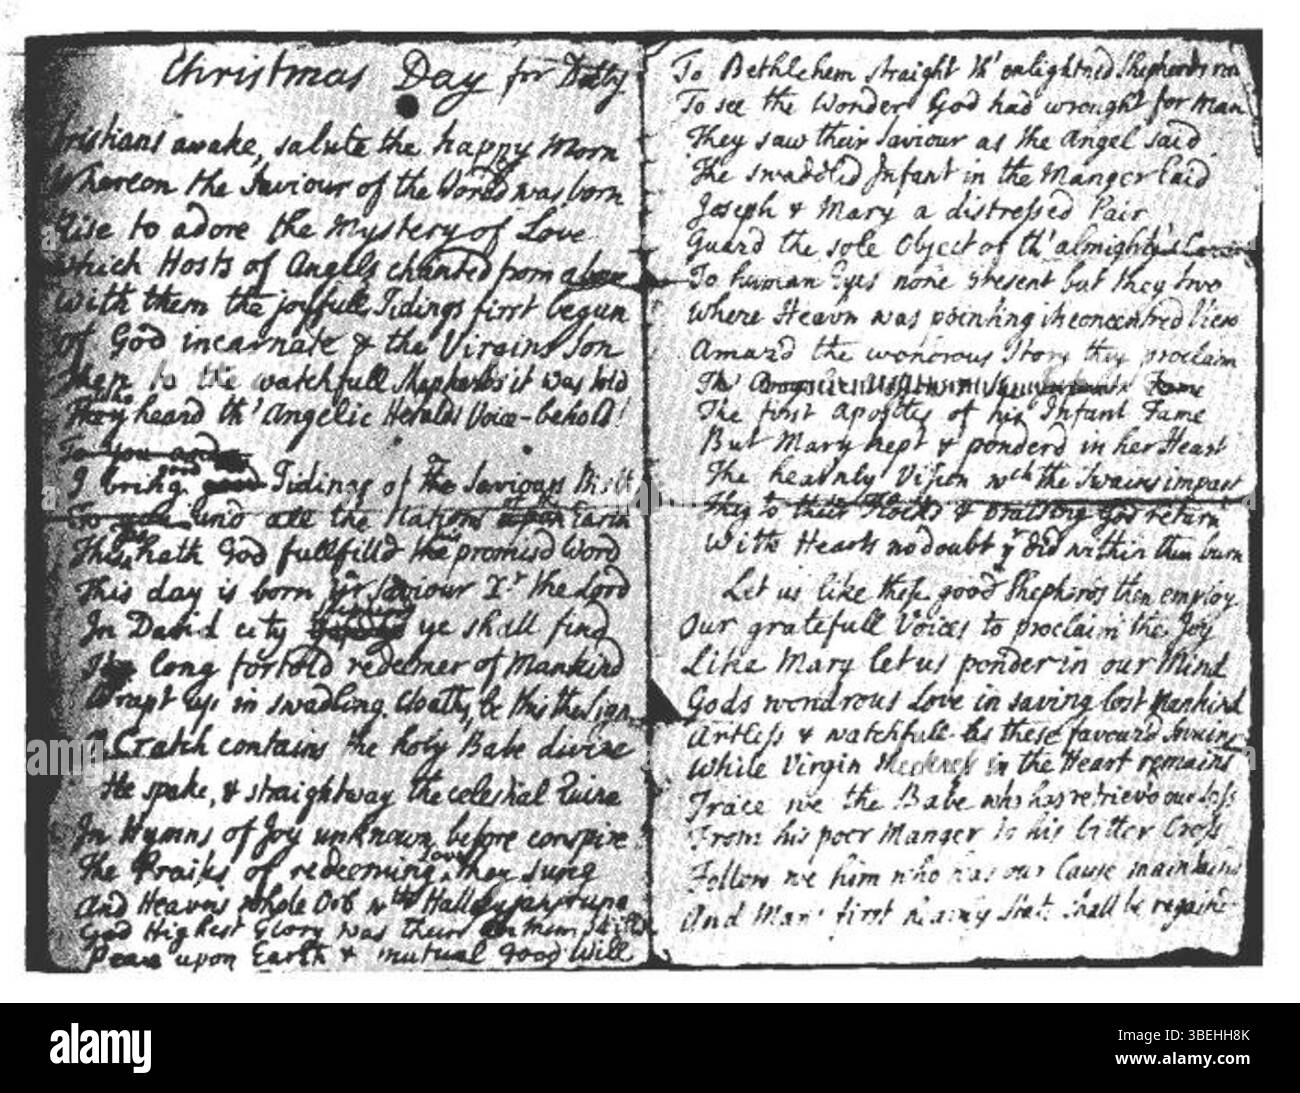 Christmas Day for Dolly
Christians awake, salute the happy Morn
Whereon the Saviour of the World was born
Rise to adore the Mystery of Love
which Hosts of Angels chanted from above
With them the joyfull Tidings first begun
of God incarnate & the Virgins Son
then to the watchfull Shepherds it was told
They heard th' Angelic Heralds Voice - behold!
To you and
I bring good Tidings of The Saviours Birth
To you and all the Nations upon Earth
This hath God fullfill'd the promisd Word
This day is born yr Saviour Xt the Lord
In David city ye shall find
The long fortold redeemer of Mankind
Wrapt up in swadling Cloaths, be this the Sign
A Cratch contains the holy Babe divine
He spake, & straightway the celestial Quire
In Hymns of Joy unknown before conspire
The Praises of redeeming Love they sung
And Heavens whole Orb wth Hallelujahs rung
God Highest Glory was their Anthem still
Peace upon Earth & mutual good Will
To Bethlehem straight th' enlightned Shepherds ran
To see the Wonder God had wrought for Man
They saw their Saviour as the Angel said
The swaddled Infant in the Manger laid
Joseph & Mary a distressed Pair
Guard the sole Object of th' almighty's Care
To human Eyes none present but they two
Where Heavn was pointing its concentred View
Amaz'd the wondrous Story they proclaim
Th' Fame
The first Apostles of his Infant Fame
But Mary kept & ponderd in her Heart
The heavnly Vision wch the Swains impart
They to their Flocks & praising God return
With Hearts no doubt yt did within them burn
Let us like these good Shepherds then employ
Our gratefull Voices to proclaim the Joy
Like Mary let us ponder in our Mind
Gods wondrous Love in saving lost Mankind
Artless & watchfull as these favourd Swains
While Virgin Meekness in the Heart remains
Trace we the Babe who has retriev'd our Loss
From his poor Manger to his bitter Cross
Follow we him who has our Cause maintaind
And Mans first heavnly State shall be regaind
alamy
Image ID: 3BEHH8K
www.alamy.com